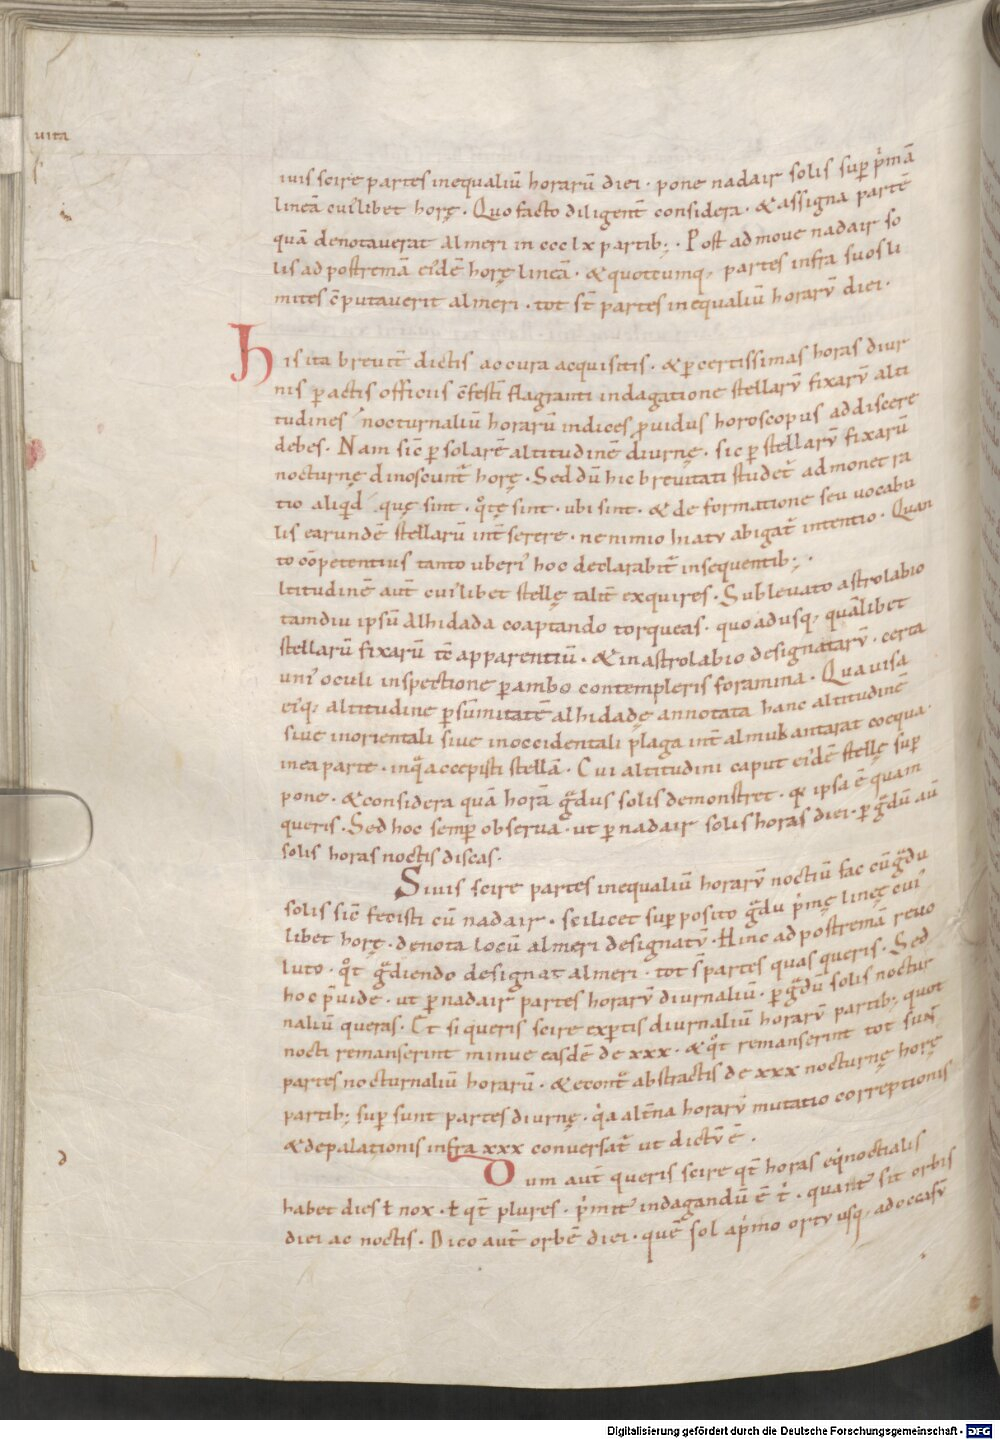 vita
iuis scire partes inequaliū horarū diei · pone nadair solis suꝑ p̍mā
lineā cui᾽libet horę · Quo facto diligent̄ considera · & assigna partē
quā denotauerat almeri in ccc lx partib; · Post admoue nadair so
lis ad postremā ei᾽dē horę lineā · & quotcumq; partes infra suos li
mites c̄putauerit almeri · tot st̄ partes inequaliū horarū diei ·
His ita breuit̄ dictis ac cura acquisitis · & ꝑ certissimas horas diur
nis ꝑactis officiis c̄festī flagranti indagatione stellarū fixarū alti
tudines nocturnaliū horarū indices ꝓuidus horoscopus addiscere
debes · Nam sic̄ ꝑ solarē altitudinē diurnę · sic ꝑ stellarū fixarū
nocturnę dinoscunt᷑ horę · Sed dū hic breuitati studet᷑ admonet ra
tio aliqd̄ quę sint · qͦtę sint · ubi sint · & de formatione seu vocabu
lis earundē stellarū int̄serere · ne nimio hiatu abigat᷑ intentio · Quan
to cōpetentius tanto uberi᾽ hoc declarabit᷑ in sequentib; ·
ltitudinē aut̄ cui᾽libet stellę talit̄ exquires · Subleuato astrolabio
tamdiu ipsū Alhidada coaptando torqueas · quo adusq; quālibet
stellarū fixarū tē apparentiū · & in astrolabio designatarū · certa
uni᾽ oculi inspectione ꝑ ambo contempleris foramina · Qua uisa
ei᾽q; altitudine ꝑ sūmitatē alhidadę annotata hanc altitudinē
siue in orientali siue in occidentali plaga int̄ almukantarat coequa ·
in ea parte · in qͣ accepisti stellā · Cui altitudini caput ei᾽dē stellę suꝑ
pone · & considera quā horā gͣdus solis demonstret · qͥ ipsa ē quam
queris · Sed hoc semꝑ obserua · ut ꝑ nadair solis horas diei · ꝑ gͣdū aū
solis horas noctis discas ·
Siuis scire partes inequaliū horarū noctiū fac cū gͣdu
solis sic̄ fecisti cū nadair · scilicet suꝑposito gͣdu p̍mę lineę cui᾽
libet horę · denota locū almeri designatū · Hinc ad postremā reuo
luto · qͦt gͣdiendo designat almeri · tot s̄ partes quas queris · Sed
hoc p̄uide · ut ꝑ nadair partes horarū diurnaliū · ꝑ gͣdū solis noctur
naliū queras · Et si queris scire exꝑtis diurnaliū horarū partib; quot
nocti remanserint minue easdē de xxx · & qͦt remanserint tot sun̄
partes nocturnaliū horarū · & econt͛ abstractis de xxx nocturnę horę
partib; suꝑ sunt partes diurnę · qͥa alt̄na horarū mutatio correptionis
& depalationis infra xxx conuersat᷑ ut dictū ē ·
d
Dum aut̄ queris scire qͦt horas eqͥnoctialis
habet dies ł nox · ł qͦt plures · p̍mit᾽ indagandū ē t̍ · quant᾽ sit orbis
diei ac noctis · Dico aut̄ orbē diei · quē sol a p̍mo ortu usq; ad occasū
Digitalisierung gefördert durch die Deutsche Forschungsgemeinschaft - DFG